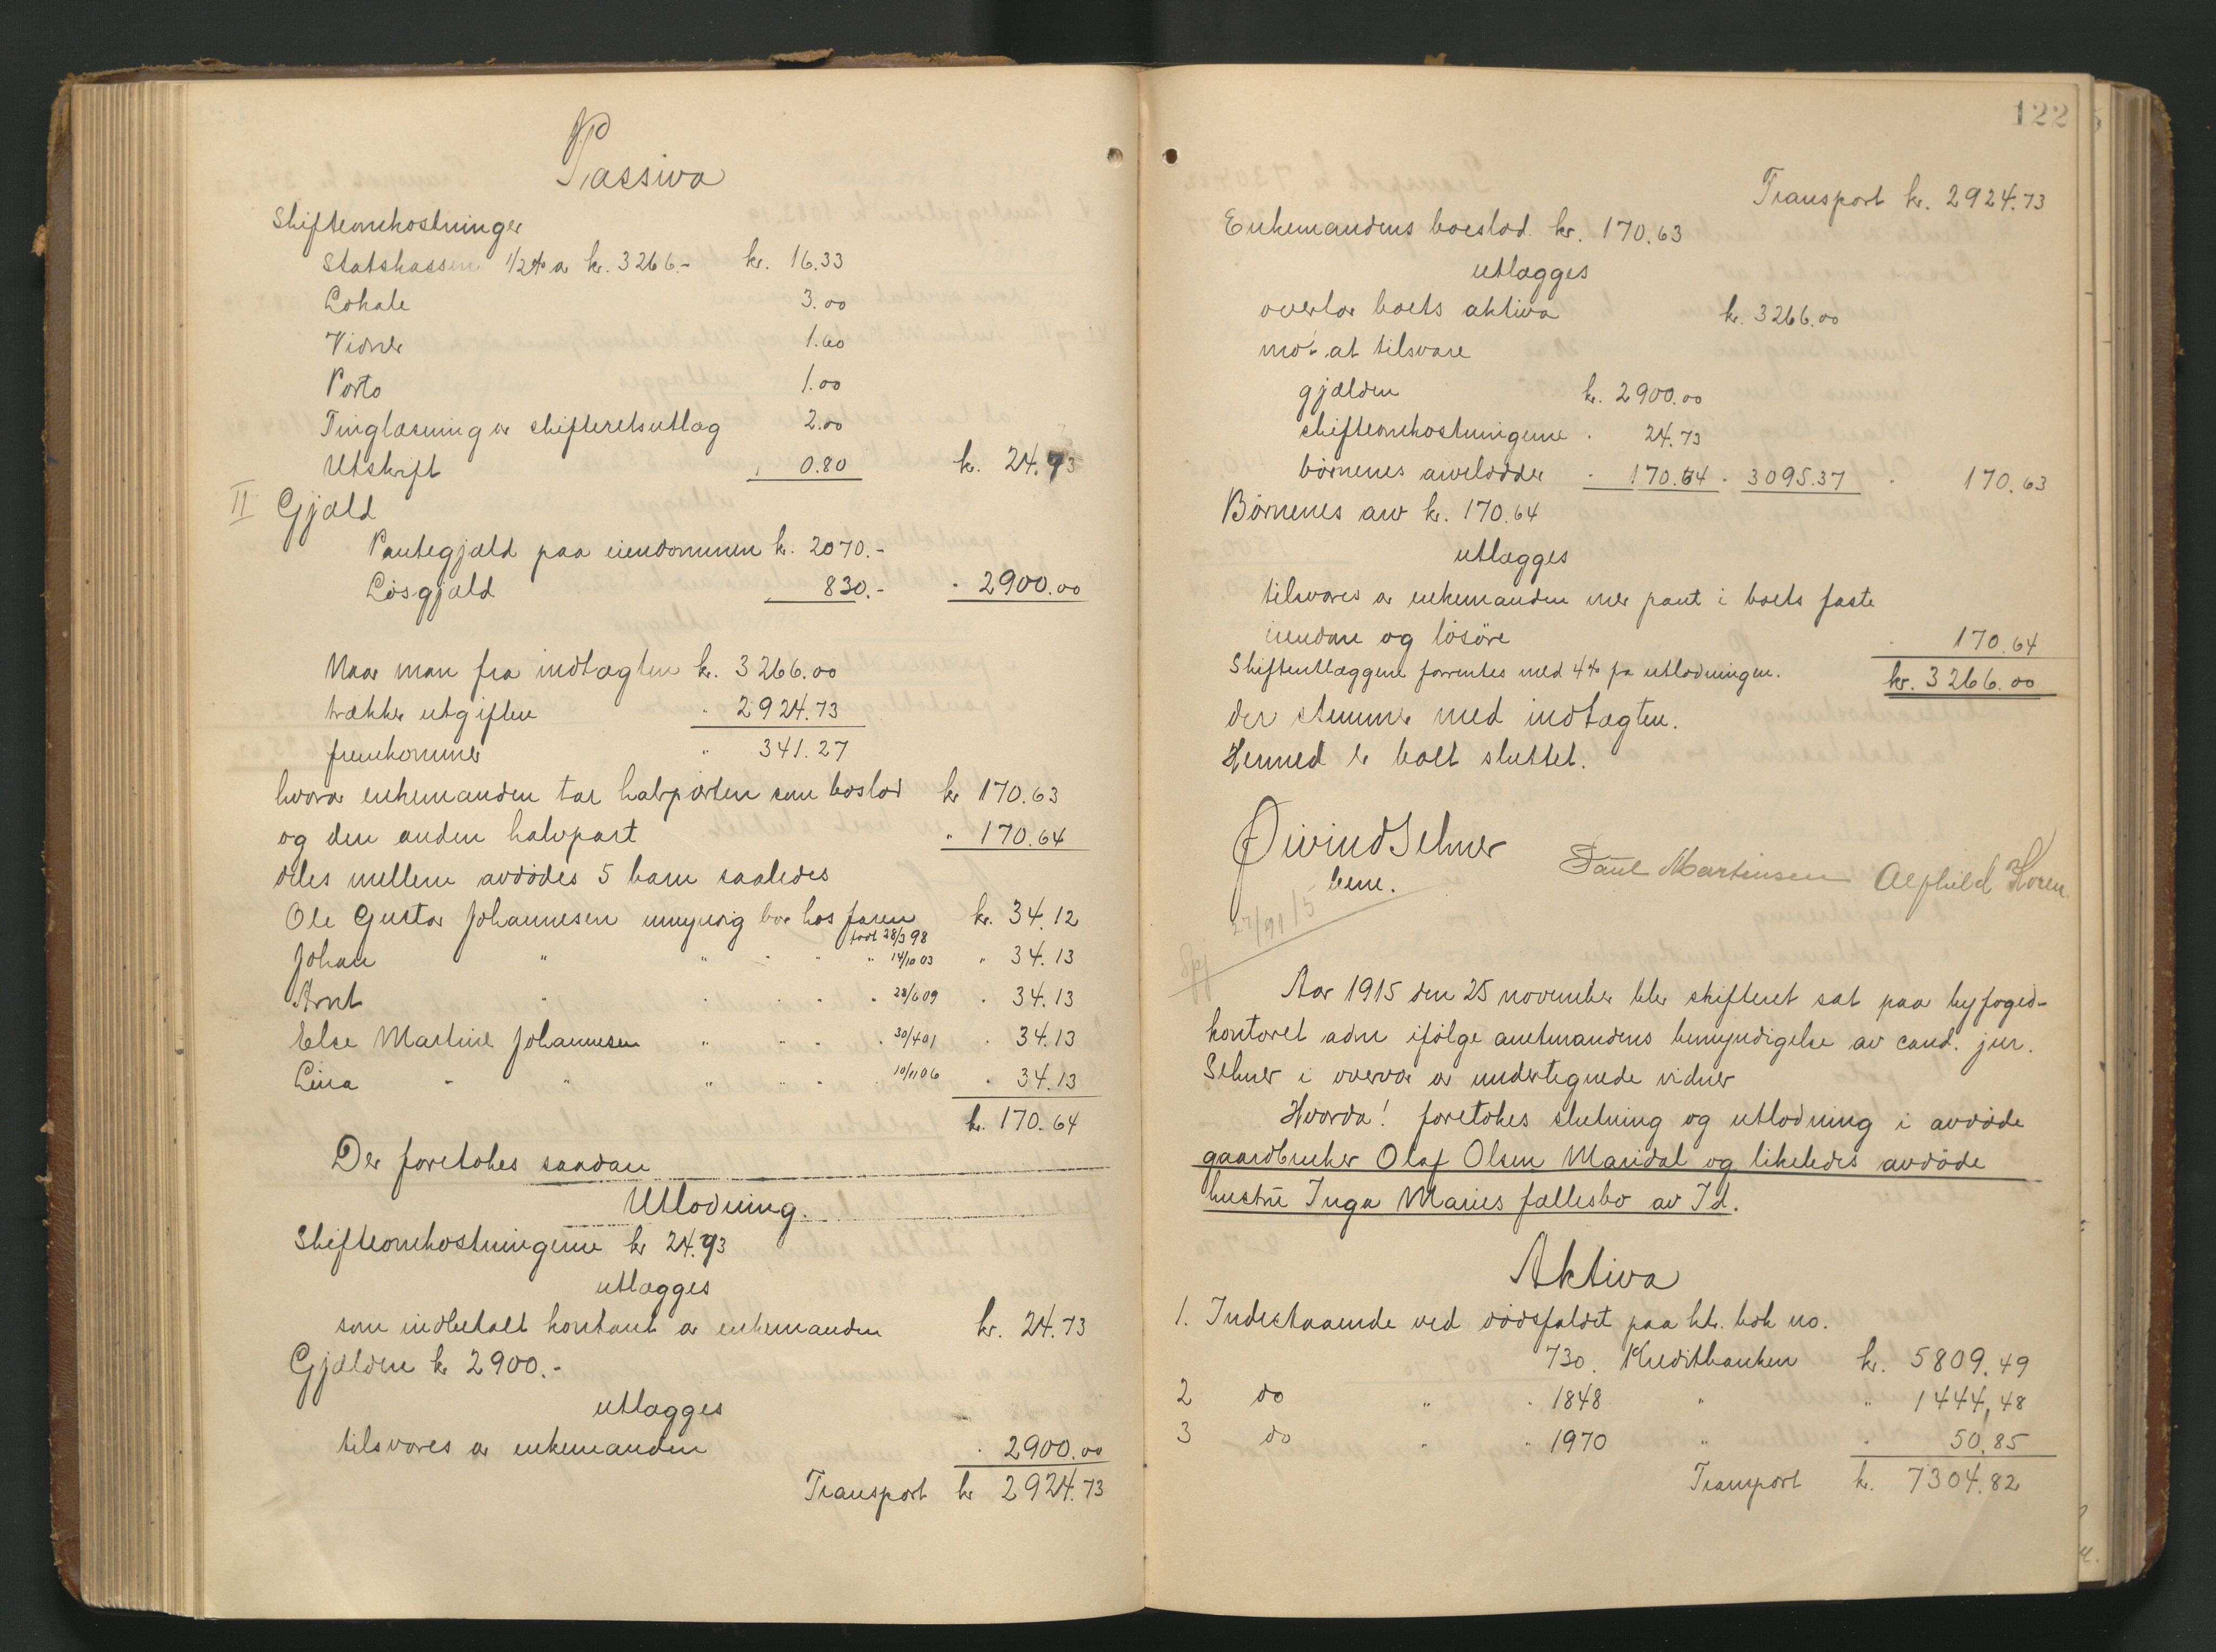 Passiva
Skifteomkostninger
Statskassen 1/2 % av kr. 3266.- kr. 16.33
Lokale 3.00
Vidner 1.60
Porto 1.00
Tinglæsning av skifteretsutlæg 2.00
Utskrift " 0.80 kr. 24.73
II Gjæld
Pantegjæld paa eiendommen kr. 2070.-
Løsgjæld " 830.- " 2900.00
Naar man fra indtægten kr. 3266.00
trækker utgiften " 2924.73
fremkommer " 341.27
hvorav enkemanden tar halvparten som boslod kr 170.63
og den anden halvpart " 170.64
deles mellem avdødes 5 barn saaledes
Ole Gustav Johannesen umyndig bor hos faren kr. 34.12
født 28/3 98
Johan " " " " " 14/10 03 " 34.13
Arnt " " " " " 28/6 09 " 34.13
Else Martine Johannesen " " " " 30/4 01 " 34.13
Lina " " " " " " 10/11 06 " 34.13
kr. 170.64
Der foretokes saadan
Utlodning.
Skifteomkostningerne kr 24.73
utlægges
som indbetalt kontant av enkemanden kr. 24.73
Gjælden kr 2900.-
utlægges
tilsvares av enkemanden " 2900.00
Transport kr 2924.73
122
Transport kr. 2924.73
Enkemandens boeslod kr. 170.63
utlægges
overtar boets aktiva kr. 3266.00
mot at tilsvare
gjælden kr. 2900.00
skifteomkostningerne " 24.73
børnenes arvelodder " 170.64 " 3095.37 " 170.63
Børnenes arv kr. 170.64
utlægges
tilsvares av enkemanden mot pant i boets faste
eiendom og løsøre " 170.64
Skifteutlæggene forrentes med 4% fra utlodningen. kr. 3266.00
der stemmer med indtægten.
Hermed er boet sluttet.
Øivind Selmer
bem.
Paul Martinsen Alfhild Horen
27/11 15
Aar 1915 den 25 november blev skifteret sat paa byfoged-
kontoret adm ifølge amtmandens bemyndigelse av cand. jur.
Selmer i overvær av undertegnede vidner
Hvorda! foretokes slutning og utlodning i avdøde
gaardbruker Olaf Olsen Maridal og likeledes avdøde
hustru Inga Maries fællesbo av Id.
Aktiva
1. Indestaaende ved dødsfaldet paa ktr. bok no.
730. Kreditbanken kr. 5809.49
2 do " " 1848 " " 1444,48
3 do " " 1970 " " 50.85
Transport kr. 7304.82